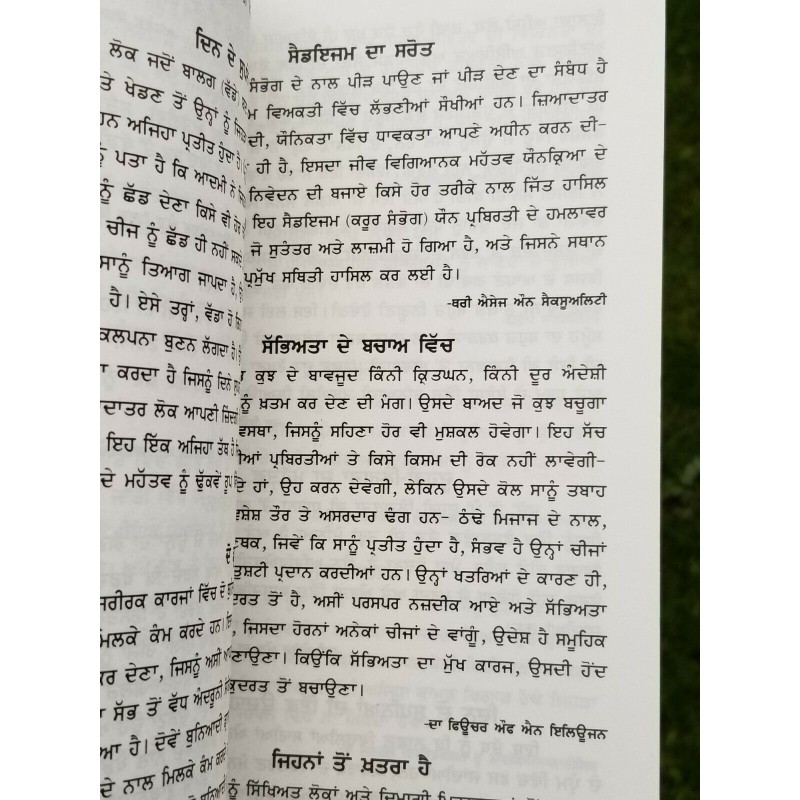 ਦਿਨ ਦੇ
ਲੋਕ ਜਦੋਂ ਬਾਲਗ (ਵੱਡੇ)
ਤੇ ਖੇਡਣ ਤੋਂ ਉਨ੍ਹਾਂ ਨੂੰ
ਹਨ ਅਜਿਹਾ ਪ੍ਰਤੀਤ ਹੁੰਦਾ ਹੈ।
ਪਤਾ ਹੈ ਕਿ ਆਦਮੀ ਨੇ
ਨੂੰ ਛੱਡ ਦੇਣਾ ਕਿਸੇ ਵੀ ਹੋਰ
ਚੀਜ ਨੂੰ ਛੱਡ ਹੀ ਨਹੀਂ ਸਕਦੇ
ਸਾਨੂੰ ਤਿਆਗ ਜਾਪਦਾ ਹੈ,
ਹੈ। ਏਸੇ ਤਰ੍ਹਾਂ, ਵੱਡਾ ਹੋ
ਕਲਪਨਾ ਬੁਣਨ ਲੱਗਦਾ ਹੈ।
ਕਰਦਾ ਹੈ ਜਿਸਨੂੰ ਦਿਨੇ
ਦਾਤਰ ਲੋਕ ਆਪਣੀ ਜ਼ਿੰਦਗੀ
ਇਹ ਇੱਕ ਅਜਿਹਾ ਤੱਥ ਹੈ
ਦੇ ਮਹੱਤਵ ਨੂੰ ਢੁੱਕਵੇਂ ਰੂਪ
ਸਰੀਰਕ ਕਾਰਜਾਂ ਵਿੱਚ ਦੋ
ਮਿਲਕੇ ਕੰਮ ਕਰਦੇ ਹਨ।
ਕਰ ਦੇਣਾ, ਜਿਸਨੂੰ ਅਸੀਂ
ਸੱਭ ਤੋਂ ਵੱਧ ਅੰਦਰੂਨੀ
ਆ ਹੈ। ਦੋਵੇਂ ਬੁਨਿਆਦੀ
ਦੇ ਨਾਲ ਮਿਲਕੇ ਕੰਮ ਕਰਦੇ
ਸੈਡਇਜਮ ਦਾ ਸਰੋਤ
ਸੰਭੋਗ ਦੇ ਨਾਲ ਪੀੜ ਪਾਉਣ ਜਾਂ ਪੀੜ ਦੇਣ ਦਾ ਸੰਬੰਧ ਹੈ
ਮ ਵਿਅਕਤੀ ਵਿੱਚ ਲੱਭਣੀਆਂ ਸੌਖੀਆਂ ਹਨ। ਜ਼ਿਆਦਾਤਰ
ਦੀ, ਯੌਨਿਕਤਾ ਵਿੱਚ ਧਾਵਕਤਾ ਆਪਣੇ ਅਧੀਨ ਕਰਨ ਦੀ-
ਹੀ ਹੈ, ਇਸਦਾ ਜੀਵ ਵਿਗਿਆਨਕ ਮਹੱਤਵ ਯੌਨਕ੍ਰਿਆ ਦੇ
ਨਿਵੇਦਨ ਦੀ ਬਜਾਏ ਕਿਸੇ ਹੋਰ ਤਰੀਕੇ ਨਾਲ ਜਿੱਤ ਹਾਸਿਲ
ਇਹ ਸੈਡਇਜਮ (ਕਰੂਰ ਸੰਭੋਗ) ਯੌਨ ਪ੍ਰਬਿਰਤੀ ਦੇ ਹਮਲਾਵਰ
ਜੋ ਸੁਤੰਤਰ ਅਤੇ ਲਾਜ਼ਮੀ ਹੋ ਗਿਆ ਹੈ, ਅਤੇ ਜਿਸਨੇ ਸਥਾਨ
ਪ੍ਰਮੁੱਖ ਸਥਿਤੀ ਹਾਸਿਲ ਕਰ ਲਈ ਹੈ।
-ਥਰੀ ਐਸੇਜ ਔਨ ਸੈਕਸੂਅਲਿਟੀ
ਸੱਭਿਅਤਾ ਦੇ ਬਚਾਅ ਵਿੱਚ
ਕੁਝ ਦੇ ਬਾਵਜੂਦ ਕਿੰਨੀ ਕ੍ਰਿਤਘਨ, ਕਿੰਨੀ ਦੂਰ ਅੰਦੇਸ਼ੀ
ਨੂੰ ਖ਼ਤਮ ਕਰ ਦੇਣ ਦੀ ਮੰਗ। ਉਸਦੇ ਬਾਅਦ ਜੋ ਕੁਝ ਬਚੂਗਾ
ਵਸਥਾ, ਜਿਸਨੂੰ ਸਹਿਣਾ ਹੋਰ ਵੀ ਮੁਸ਼ਕਲ ਹੋਵੇਗਾ। ਇਹ ਸੱਚ
ਦੀਆਂ ਪ੍ਰਬਿਰਤੀਆਂ ਤੇ ਕਿਸੇ ਕਿਸਮ ਦੀ ਰੋਕ ਨਹੀਂ ਲਾਵੇਗੀ-
ਦੇ ਹਾਂ, ਉਹ ਕਰਨ ਦੇਵੇਗੀ, ਲੇਕਿਨ ਉਸਦੇ ਕੋਲ ਸਾਨੂੰ ਤਬਾਹ
ਸ਼ੇਸ਼ ਤੌਰ ਤੇ ਅਸਰਦਾਰ ਢੰਗ ਹਨ- ਠੰਢੇ ਮਿਜਾਜ ਦੇ ਨਾਲ,
ਬਕ, ਜਿਵੇਂ ਕਿ ਸਾਨੂੰ ਪ੍ਰਤੀਤ ਹੁੰਦਾ ਹੈ, ਸੰਭਵ ਹੈ ਉਨ੍ਹਾਂ ਚੀਜਾਂ
ਤੁਸ਼ਟੀ ਪ੍ਰਦਾਨ ਕਰਦੀਆਂ ਹਨ। ਉਨ੍ਹਾਂ ਖਤਰਿਆਂ ਦੇ ਕਾਰਣ ਹੀ,
ਦਰਤ ਤੋਂ ਹੈ, ਅਸੀਂ ਪਰਸਪਰ ਨਜ਼ਦੀਕ ਆਏ ਅਤੇ ਸੱਭਿਅਤਾ
, ਜਿਸਦਾ ਹੋਰਨਾਂ ਅਨੇਕਾਂ ਚੀਜਾਂ ਦੇ ਵਾਂਗੂੰ, ਉਦੇਸ਼ ਹੈ ਸਮੂਹਿਕ
ਣਾਉਣਾ। ਕਿਉਂਕਿ ਸੱਭਿਅਤਾ ਦਾ ਮੁੱਖ ਕਾਰਜ, ਉਸਦੀ ਹੋਂਦ
ਕੁਦਰਤ ਤੋਂ ਬਚਾਉਣਾ।
-ਦਾ ਫਿਊਚਰ ਔਫ ਐਨ ਇਲਿਊਜਨ
ਜਿਹਨਾਂ ਤੋਂ ਖ਼ਤਰਾ ਹੈ
ਨੂੰ ਸਿੱਖਿਅਤ ਲੋਕਾਂ ਅਤੇ